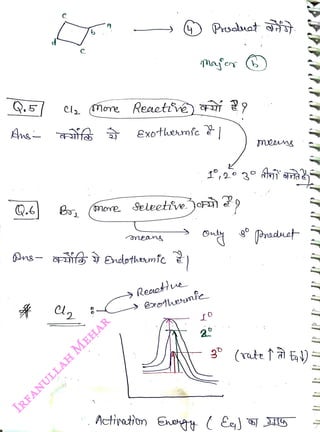 c
b a
d
c
→ ④ Product बनेंगे
major ⓑ
Q.5 Cl₂ (more Reactive) क्यों है?
Ans - क्योंकि ये Exothermic है|
means
1°, 2° 3° तीनों बनते हैं
Q.6 Br₂ (more selective) क्यों है?
means → only 3° product
Ans - क्योंकि ये Endothermic है|
* Cl₂ :- → Reactive
→ exothermic
1°
2°
3° (rate ↑ तो Ea↓)
IRFANULLAH MEHAR
Activation Energy (Ea) का ग्राफ